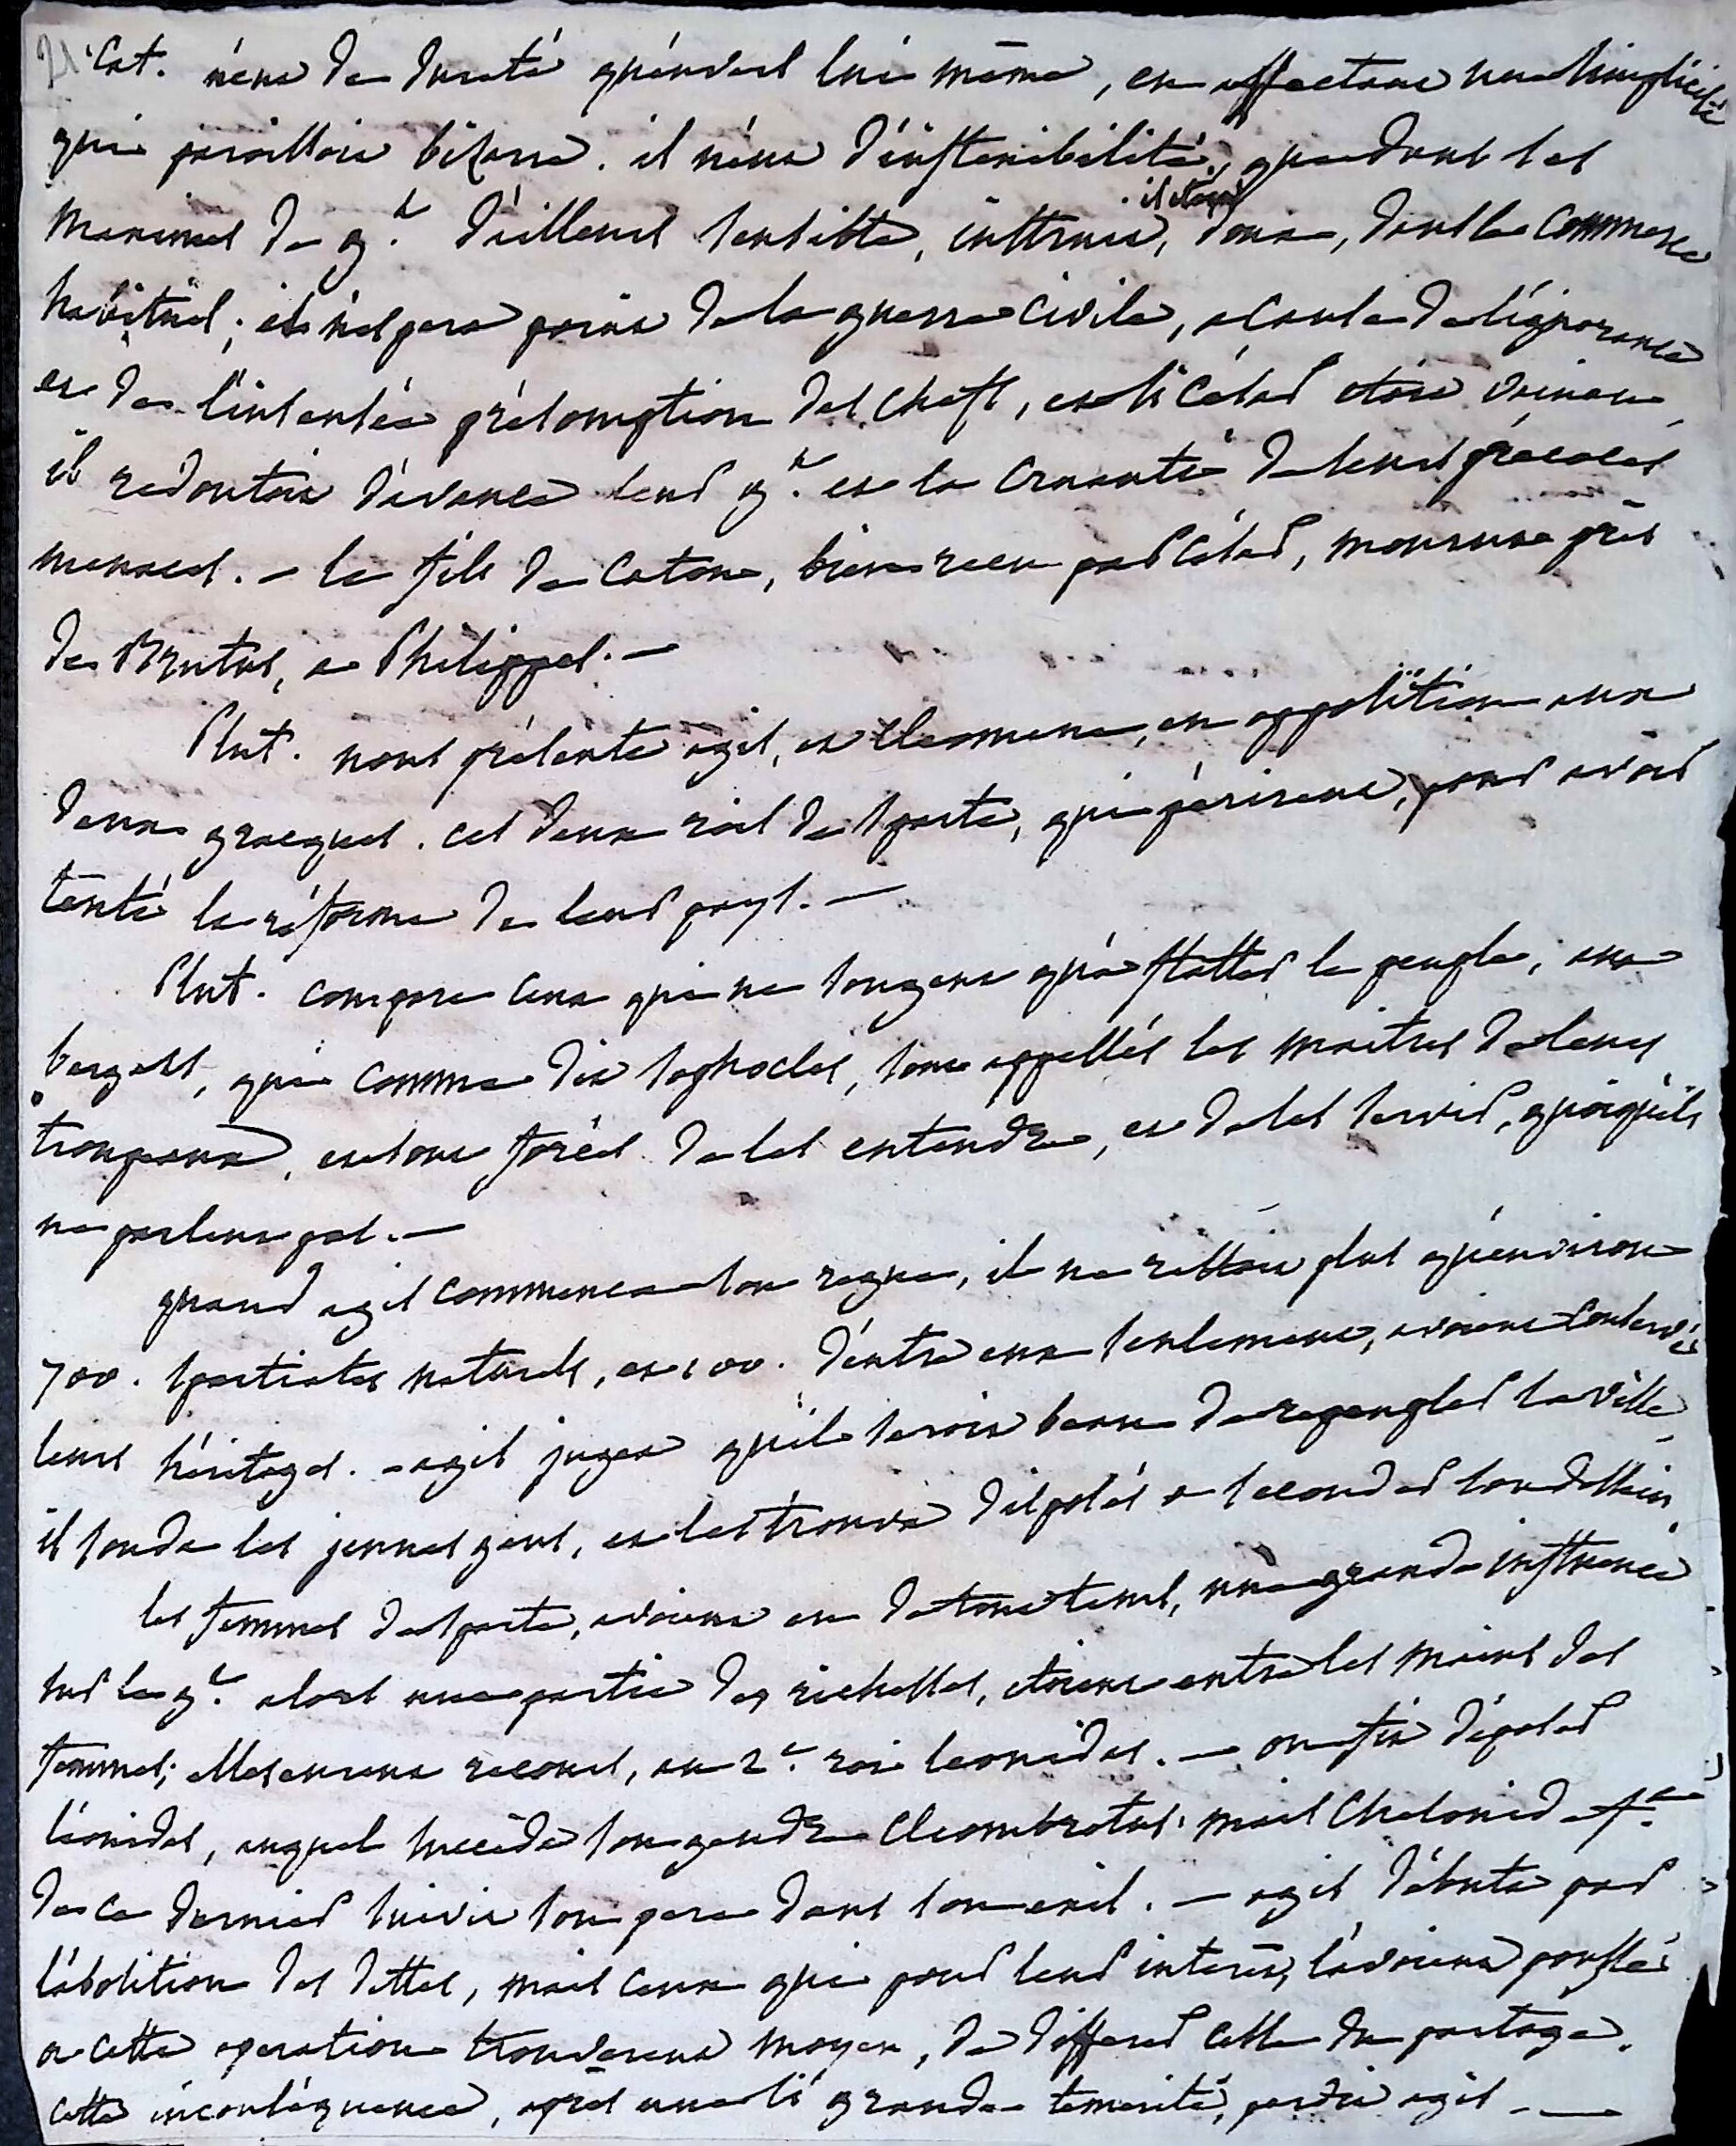 21
Cat. n'eut de dureté qu'envers lui même, en affectant une simplicité
qui paroissoit bizarre. il n'eut d'inflexibilité, que dans les
maximes de g.t d'ailleurs sensible, instruit, il étoit doux, dans le commerce
habituel; il n'espera point de la guerre civile, a cause de l'ignorance
et de l'insensée présomption des chefs, et si César étoit vaincu
il redoutoit d'avance leur g.t et la cruauté de leurs
menaces. – le fils de Caton, bien reçu par César, mourut près
de Brutus, a Philippes. –
Plut. nous présente agis, et Cleomene, en oppositïon aux
deux gracques. ces deux rois de sparte, qui périrent, pour avoir
tenté la réforme de leur pays. –
Plut. compare ceux qui ne songent qu'a flatter le peuple, aux
bergers, qui comme dit sophocles, sont appellés les maitres de leurs
troupeaux, et sont forcés de les entendre, et de les servir, quoiqu'ils
ne parlent pas. –
quand agis commença son regne, il ne restoit plus qu'environ
700. spartiates naturels, et 100. d'entre eux seulement, avoient conservés
leurs héritages. – agis jugea qu'il seroit beau de repeupler la ville,
il sonda les jeunes gens, et les trouva disposés a seconder son dessein.
les femmes de sparte, avoient eu de tout tems, une grande influence
sur le g.t alors une partie des richesses, étoient entre les mains des
femmes; elles eurent recours, au 2.e roi leonidas. – on fit déposer
léonidas, auquel succéda son gendre Cleombrotus. mais Chelonide f.e
de ce dernier suivit son pere dans son exil. – agis débuta par
l'abolition des dettes, mais ceux qui pour leur interêt, l'avoient poussé
a cette operation trouverent moyen, de differer celle du partage.
cette inconséquence, après une si grande temerité, perdit agis. —